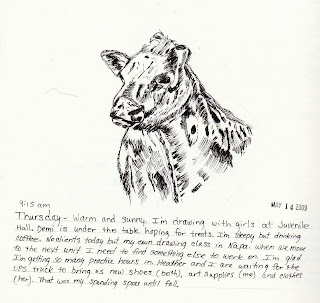 9:15 am
MAY 14 2009
Thursday - Warm and sunny. I'm drawing with girls at Juvenile
Hall. Demi is under the table hoping for treats. I'm sleepy but drinking
coffee. No clients today but my own drawing class in Napa. When we move
to the next unit I need to find something else to work on. I'm glad
I'm getting so many practice hours in. Heather and I are waiting for the
UPS truck to bring us new shoes (both), art supplies (me) and clothes
(her). That was my spending spree until fall.